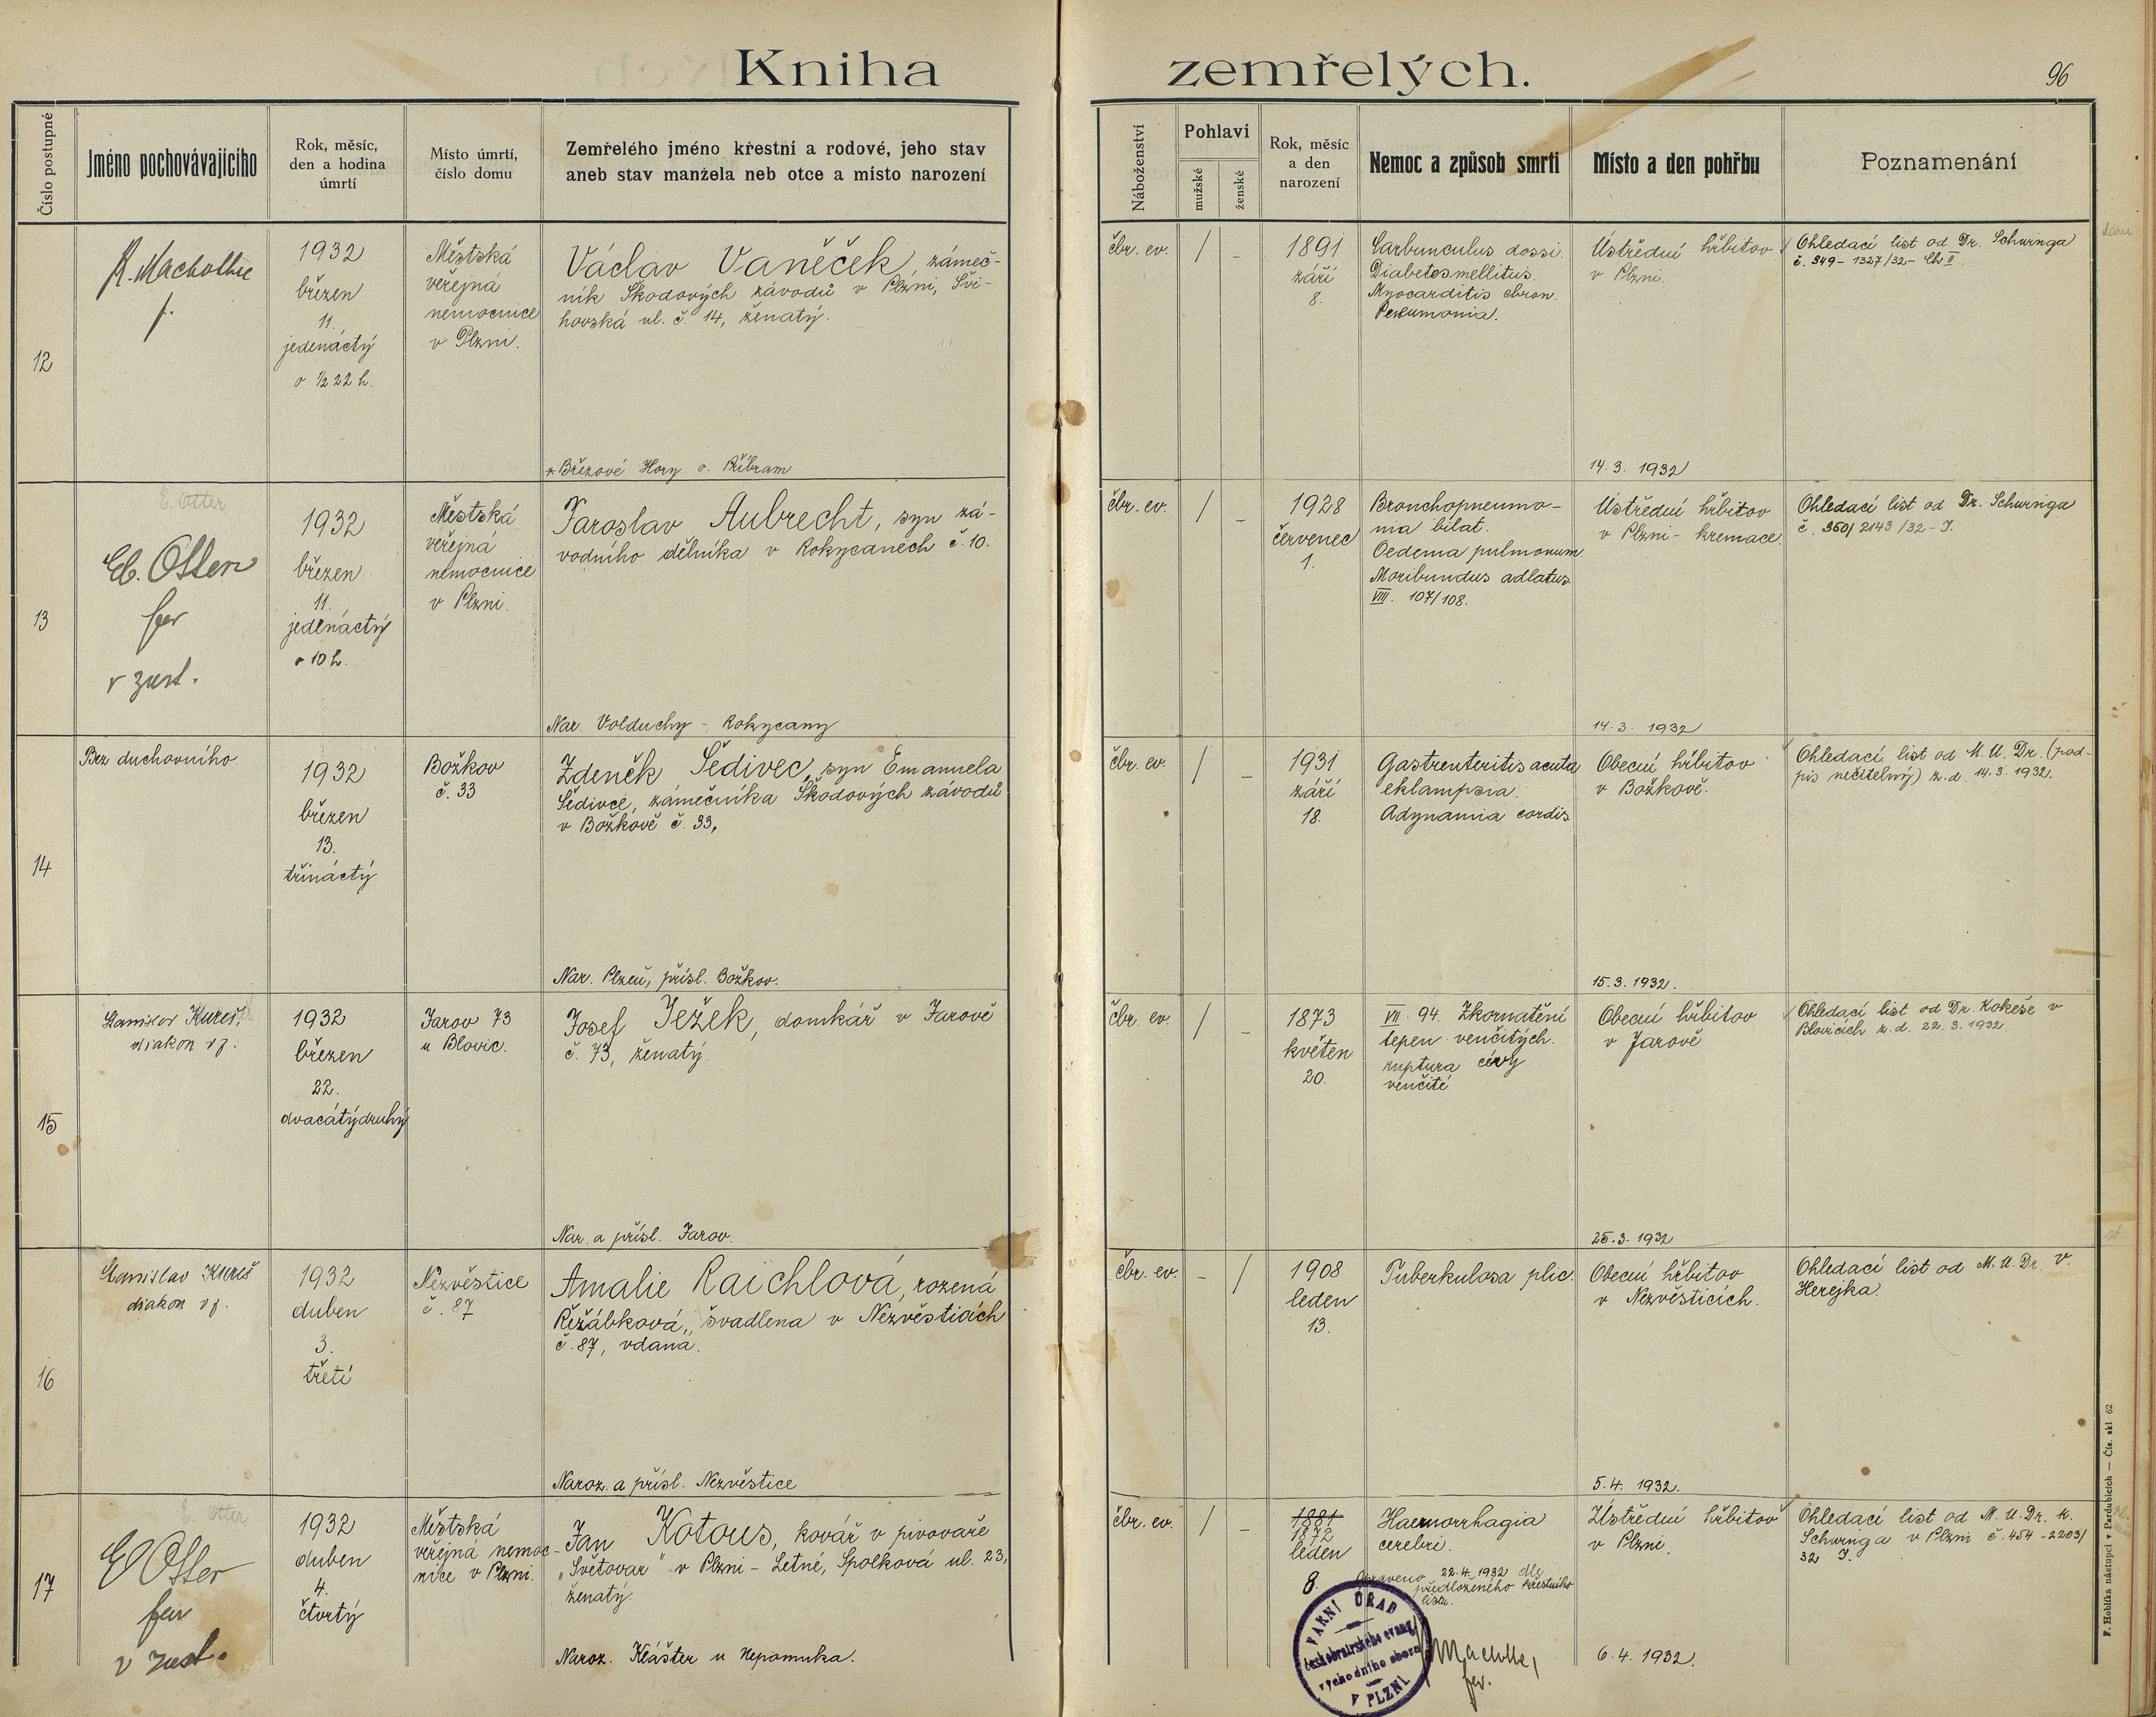 Kniha zemřelých.
96
Číslo postupné
Jméno pochovávajícího
Rok, měsíc,
den a hodina
úmrtí
Místo úmrtí,
číslo domu
Zemřelého jméno křestní a rodové, jeho stav
aneb stav manžela neb otce a místo narození
Náboženství
Pohlaví
mužské
ženské
Rok, měsíc
a den
narození
Nemoc a způsob smrti
Místo a den pohřbu
Poznamenání
12
1932
březen
11.
jedenáctý
o ½ 22 h.
Městská
veřejná
nemocnice
v Plzni.
Václav Vaněček, zámeč-
ník Škodových závodů v Plzni, Švi-
hovská ul. č. 14, ženatý.
*Březové Hory o. Příbram
čbr. ev.
/
1891
září
8.
Carbunculus dossi.
Diabetes mellitus.
Myocarditis chron.
Pneumonia.
Ústřední hřbitov
v Plzni.
14. 3. 1932
Ohledací list od Dr. Schwinga
č. 349 - 1327/32 - Ch II.
13
E. Otter
E. Otter
far
v zast.
1932
březen
11.
jedenáctý
o 10 h.
Městská
veřejná
nemocnice
v Plzni.
Jaroslav Aubrecht, syn zá-
vodního dělníka v Rokycanech č. 10.
Nar. Volduchy - Rokycany
čbr. ev.
/
-
1928
červenec
1.
Bronchopneumo-
nia bilat.
Oedema pulmonum
Moribundus adlatus.
VIII. 107/108.
Ústřední hřbitov
v Plzni - kremace.
14. 3. 1932
Ohledací list od Dr. Schwinga
č. 350/2143/32 - I.
14
Bez duchovního.
1932
březen
13.
třináctý
Božkov
č. 33
Zdeněk Šedivec, syn Emanuela
Šedivce, zámečníka Škodových závodů
v Božkově č. 33.
Nar. Plzeň, přísl. Božkov.
čbr. ev.
/
-
1931
září
18.
Gastrenteritis acuta
eklampsia.
Adynamia cordis
Obecní hřbitov
v Božkově.
15. 3. 1932.
Ohledací list od M. U. Dr. (pod-
pis nečitelný) z. d. 14. 3. 1932.
15
Stanislav Kureš
diakon vj.
1932
březen
22.
dvacátýdruhý
Jarov 73
u Blovic.
Josef Ježek, domkář v Jarově
č. 73, ženatý.
Nar. a přísl. Jarov.
čbr. ev.
/
-
1873
květen
20.
VII. 94. Zkornatění
tepen venčitých.
ruptura cévy
venčité
Obecní hřbitov
v Jarově
25. 3. 1932
Ohledací list od Dr. Kokeše v
Blovicích z. d. 22. 3. 1932.
16
Stanislav Kureš
diakon vj.
1932
duben
3.
třetí
Nezvěstice
č. 87
Amalie Raichlová, rozená
Řežábková, švadlena v Nezvěsticích
č. 87, vdaná.
Naroz. a přísl. Nezvěstice
čbr. ev.
-
/
1908
leden
13.
Tuberkulosa plic.
Obecní hřbitov
v Nezvěsticích.
5. 4. 1932.
Ohledací list od M. U. Dr. V.
Herejka.
17
E. Otter
E Otter
far
v zast.
1932
duben
4.
čtvrtý
Městská
veřejná nemoc-
nice v Plzni.
Jan Kotous, kovář v pivovaře
„Světovar" v Plzni - Letné, Spolková ul. 23,
ženatý.
Naroz. Klášter u Nepomuka.
čbr. ev.
/
-
1881
1872
leden
8.
Haemorrhagia
cerebri.
Opraveno 22. 4. 1932 dle
předloženého křestního
listu.
FARNÍ ÚŘAD
českobratrského evang.
východního sboru
V PLZNI
Ústřední hřbitov
v Plzni.
6. 4. 1932.
Ohledací list od M. U. Dr. K.
Schwinga v Plzni č. 454 - 2203/
32 I.
F. Hoblíka nástupci v Pardubicích — Čís. skl 62